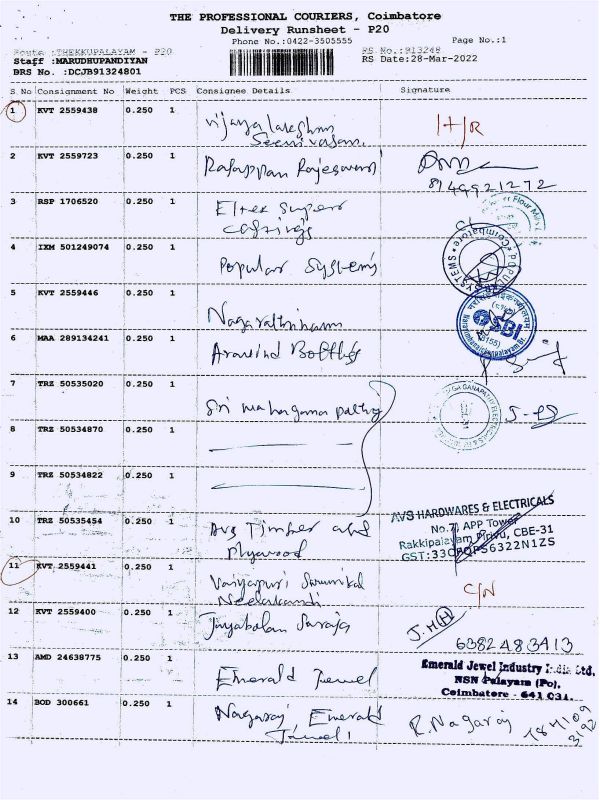 THE PROFESSIONAL COURIERS, Coimbatore
Delivery Runsheet - P20
Phone No.:0422-3505555
Page No.:1
Route :THEKKUPALAYAM - P20
RS No.:913248
Staff :MARUDHUPANDIYAN
RS Date:28-Mar-2022
DRS No. :DCJB91324801
S No Consignment No Weight PCS Consignee Details Signature
1 KVT 2559438 0.250 1 Vijayalakshmi
Seenivasan.
2 KVT 2559723 0.250 1 Rajeswari
8149921272
3 RSP 1706520 0.250 1 Eltek Super
Castings
Flour Mill
4 IXM 501249074 0.250 1 Popular Systems
POPULAR SYSTEMS Coimbatore
5 KVT 2559446 0.250 1 Nagarathinam
SBI
6 MAA 289134241 0.250 1 Aravind
7 TRZ 50535020 0.250 1 Sri mahaganapathy
GANAPATHY
8 TRZ 50534870 0.250 1
9 TRZ 50534822 0.250 1
10 TRZ 50535454 0.250 1 AVS Timber and
Plywood
AVS HARDWARES & ELECTRICALS
No.7, APP Tower
Rakkipalayam Pirivu, CBE-31
11 KVT 2559441 0.250 1
C/N
12 KVT 2559400 0.250 1 Jayabalan Saroja
6382483413
13 AMD 24638775 0.250 1 Emerald Jewel
Emerald Jewel Industry India Ltd.
NSN Palayam (Po),
Coimbatore - 641 031.
14 BOD 300661 0.250 1 Nagaraj, Emerald
Jewel
R. Nagaraj